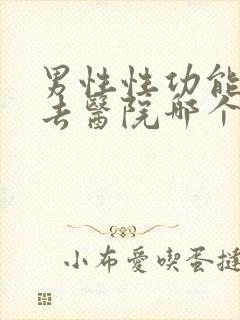 男性性功能
去醫院哪个
小布愛喫蛋撻